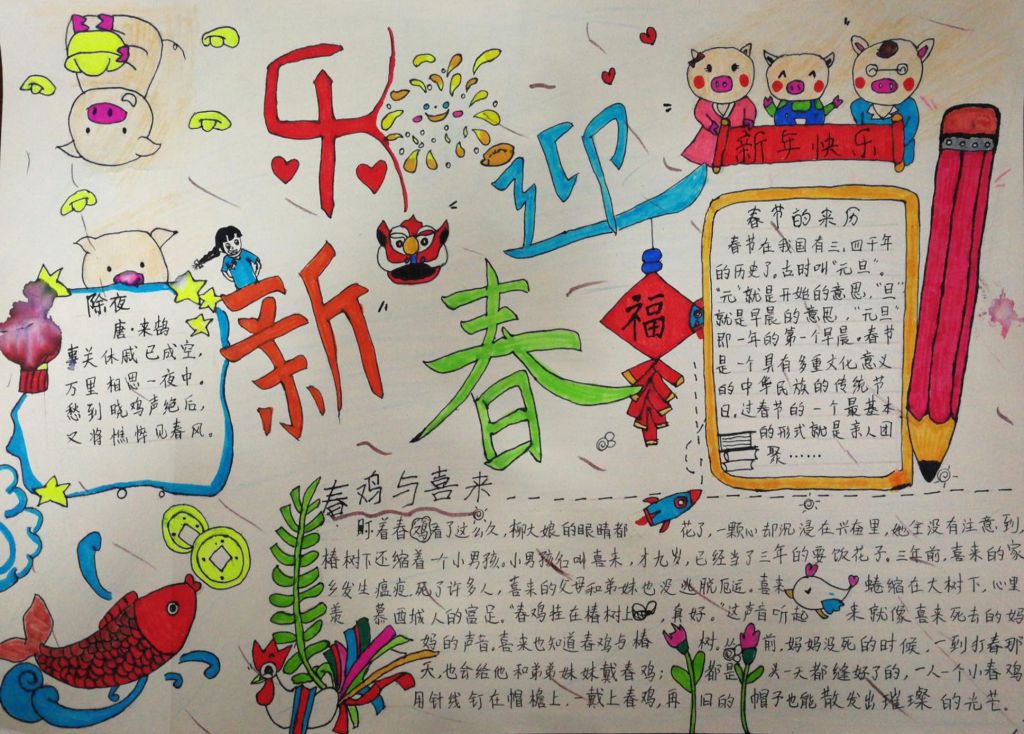 乐迎
新春
新年快乐
福
除夜
唐·来鹄
事关休戚已成空，
万里相思一夜中。
愁到晓鸡声绝后，
又将憔悴见春风。
春节的来历
春节在我国有三、四千年
的历史了。古时叫“元旦”。
“元”就是开始的意思，“旦”
就是早晨的意思，“元旦”
即一年的第一个早晨。春节
是一个具有多重文化意义
的中华民族的传统节
日。过春节的一个最基本
的形式就是亲人团
聚……
春鸡与喜来
盯着春鸡看了这么久，柳大娘的眼睛都花了，一颗心却沉浸在兴奋里，她全没有注意到，
椿树下还缩着一个小男孩。小男孩名叫喜来，才九岁，已经当了三年的要饮花子。三年前，喜来的家
乡发生瘟疫，死了许多人，喜来的父母和弟妹也没逃脱厄运。喜来蜷缩在大树下，心里
羡慕西城人的富足。“春鸡挂在椿树上，身好。”这声音听起来就像喜来死去的妈
妈的声音，喜来也知道春鸡与椿树。前，妈妈没死的时候，一到打春那
天，也会给他和弟弟妹妹戴春鸡；都是头一天都缝好了的，一人一个小春鸡
用针线钉在帽檐上，一戴上春鸡，再旧的帽子也能散发出璀璨的光芒。